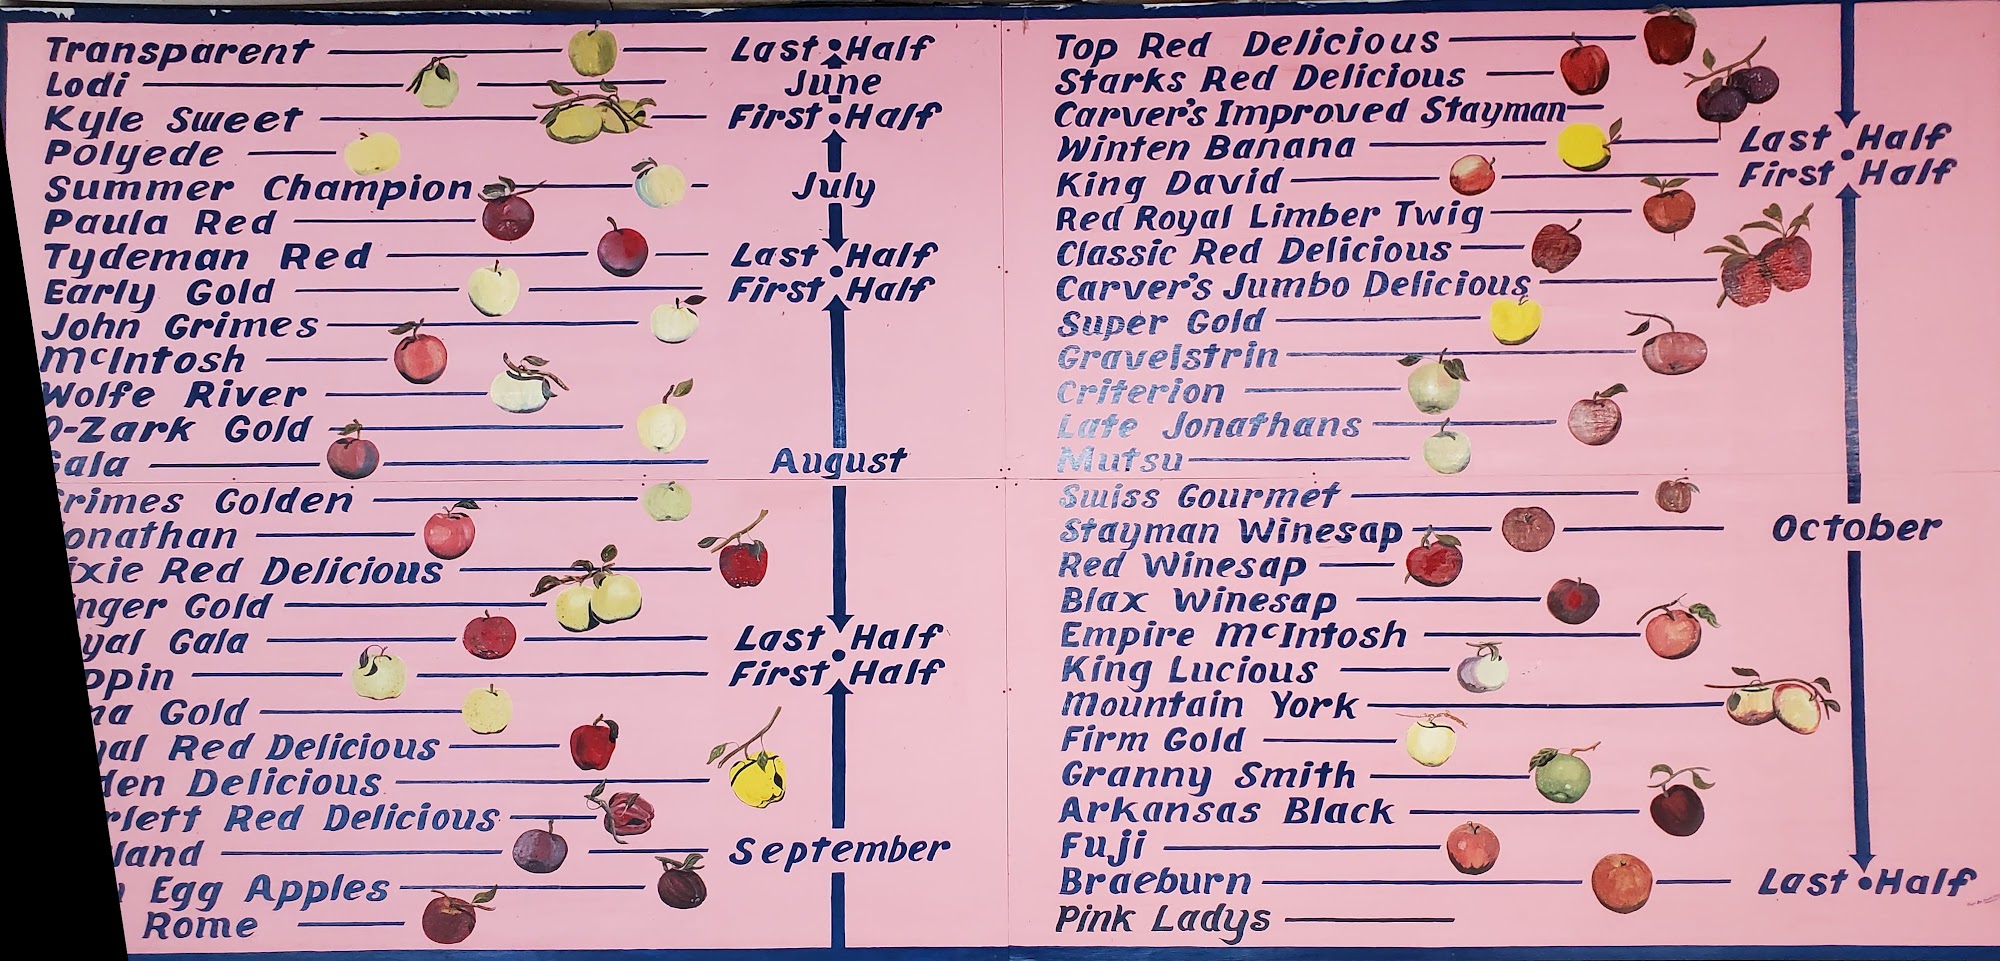 Transparent
Lodi
Kyle Sweet
Polyede
Summer Champion
Paula Red
Tydeman Red
Early Gold
John Grimes
McIntosh
Wolfe River
O-Zark Gold
Gala
Grimes Golden
Jonathan
ixie Red Delicious
inger Gold
yal Gala
ppin
na Gold
yal Red Delicious
den Delicious
rlett Red Delicious
land
Egg Apples
Rome
Last Half
June
First Half
July
Last Half
First Half
August
Last Half
First Half
September
Top Red Delicious
Starks Red Delicious
Carver's Improved Stayman
Winten Banana
King David
Red Royal Limber Twig
Classic Red Delicious
Carver's Jumbo Delicious
Super Gold
Gravelstrin
Criterion
Late Jonathans
Mutsu
Swiss Gourmet
Stayman Winesap
Red Winesap
Blax Winesap
Empire McIntosh
King Lucious
Mountain York
Firm Gold
Granny Smith
Arkansas Black
Fuji
Braeburn
Pink Ladys
Last Half
First Half
October
Last Half